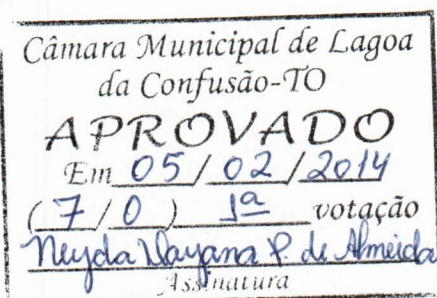 Câmara Municipal de Lagoa
da Confusão-TO
APROVADO
Em 05/02/2014
(7/0) 1ª votação
Neyda Dayana P. de Almeida
Assinatura